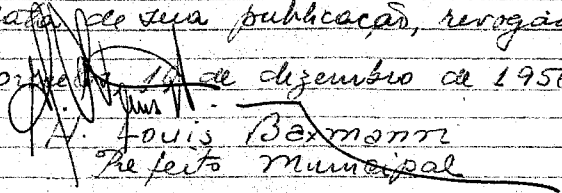 data de sua publicação, revogad
14 de dezembro de 195
H. Louis Baxmann
Prefeito Municipal